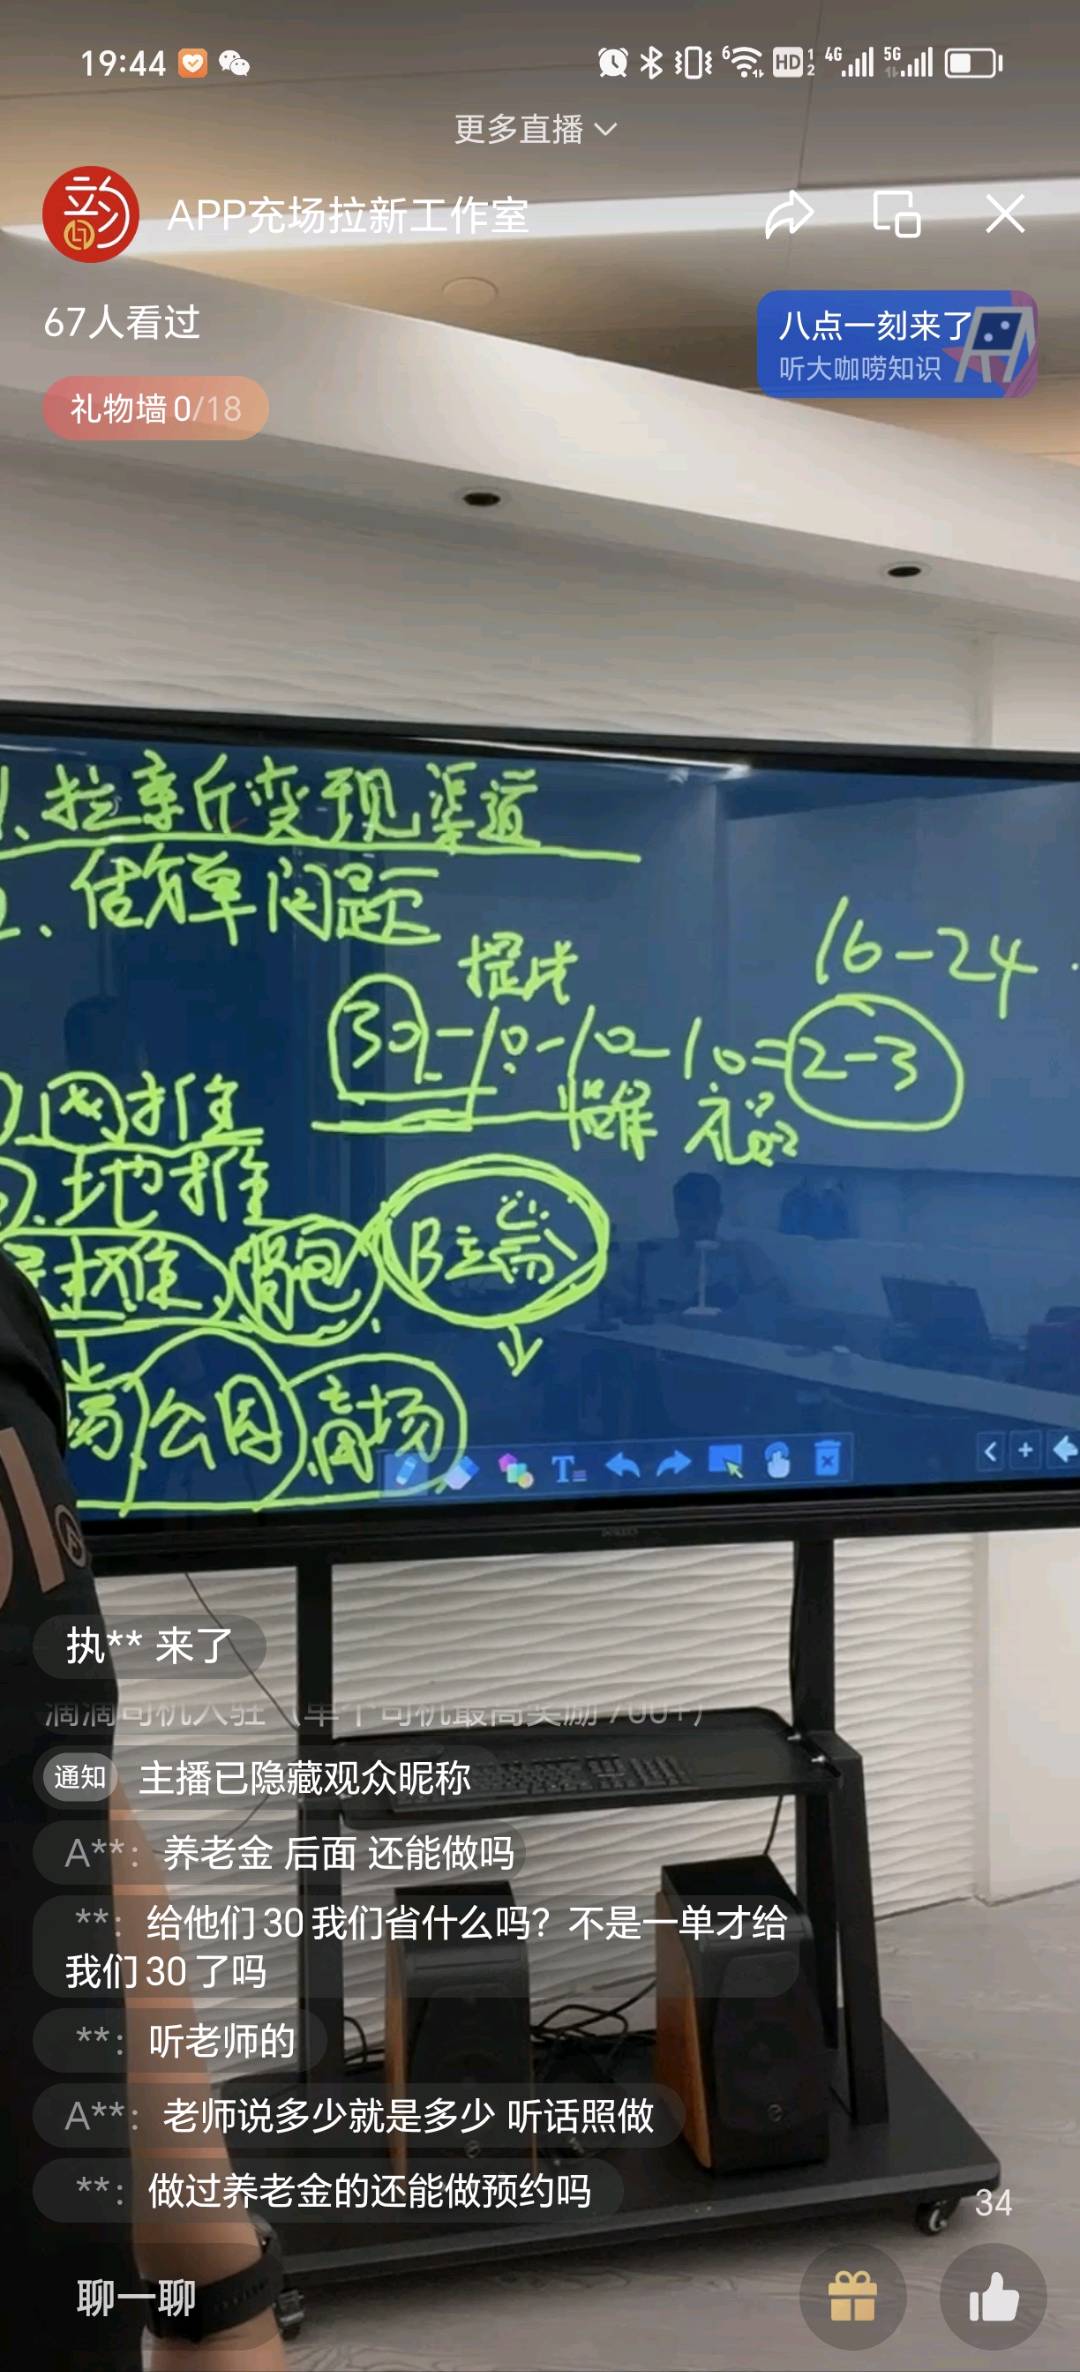 19:44
6
HD 1 2
4G
5G
更多直播
韵
APP充场拉新工作室
67人看过
八点一刻来了
听大咖唠知识
礼物墙0/18
1、拉亲斤变现渠道
做单问题
16-24
30-10-10-10=2-3
礼品
网推
地推
背包
B端
公园
商场
T
执** 来了
滴滴司机入驻（单个司机最高奖励700+）
通知 主播已隐藏观众昵称
A**：养老金 后面 还能做吗
**：给他们30我们省什么吗？不是一单才给
我们30了吗
**：听老师的
A**：老师说多少就是多少 听话照做
**：做过养老金的还能做预约吗
34
聊一聊